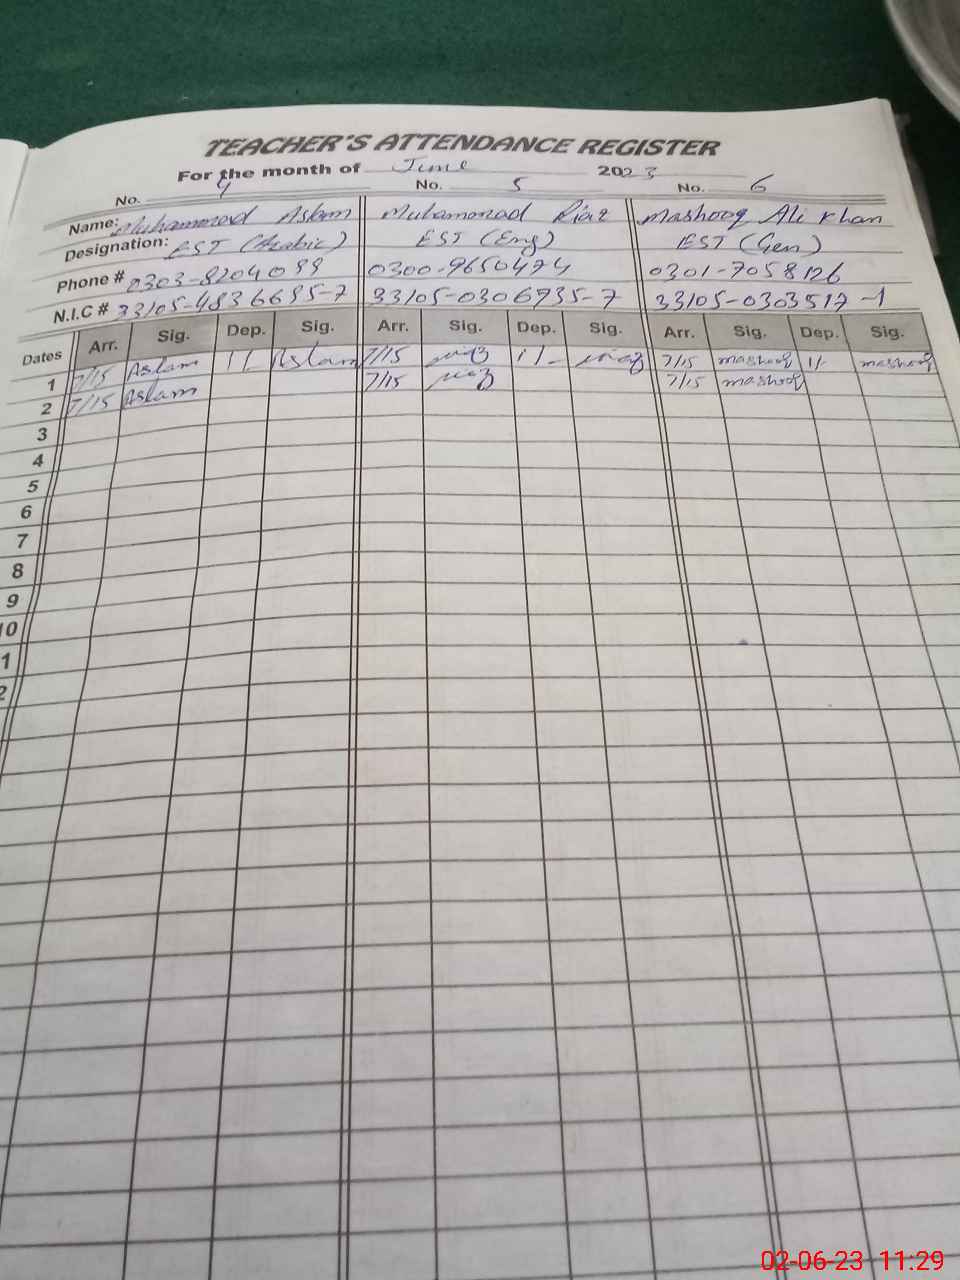 TEACHER'S ATTENDANCE REGISTER
For the month of June 2023
No. 4 No. 5 No. 6
Name: Muhammad Aslam Muhammad Riaz Mashooq Ali Khan
Designation: EST (Arabic) EST (Eng) EST (Gen)
Phone # 0303-8204099 0300-9650474 0301-7058126
N.I.C # 33105-4836695-7 33105-0306735-7 33105-0303517-1
Dates Arr. Sig. Dep. Sig. Arr. Sig. Dep. Sig. Arr. Sig. Dep. Sig.
1 7/15 Aslam 1/- Aslam 7/15 riaz 1/- riaz 7/15 mashooq 1/- mashooq
2 7/15 Aslam 7/15 riaz 7/15 mashooq
3
4
5
6
7
8
9
10
1
2
02-06-23 11:29